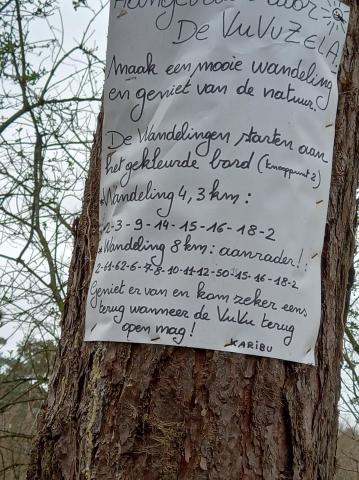 Aangeboden door
De VuVuZELA
Maak een mooie wandeling
en geniet van de natuur.
De Wandelingen starten aan
het gekleurde bord (knooppunt 2)
• Wandeling 4,3 km :
2-3-9-14-15-16-18-2
• Wandeling 8 km : aanrader! :
2-61-62-6-7-8-10-11-12-50-15-16-18-2
Geniet er van en kom zeker eens
terug wanneer de VuVu terug
open mag !
KARiBU